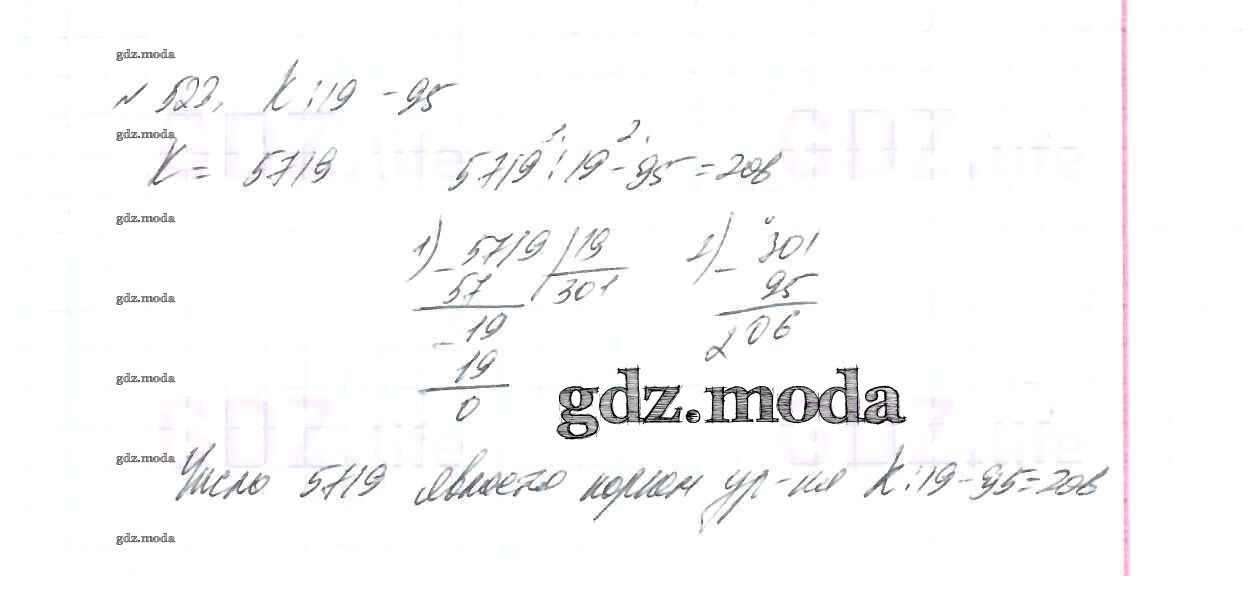 gdz.moda
№ 523. K : 19 - 95
gdz.moda
K = 5719 5719 : 19 - 95 = 206
1. 2.
gdz.moda
1) - 5719 | 19 2) - 301
57 301 95
gdz.moda
- 19 206
19
gdz.moda
0
gdz.moda
gdz.moda
Число 5719 является корнем ур-ния K : 19 - 95 = 206
gdz.moda